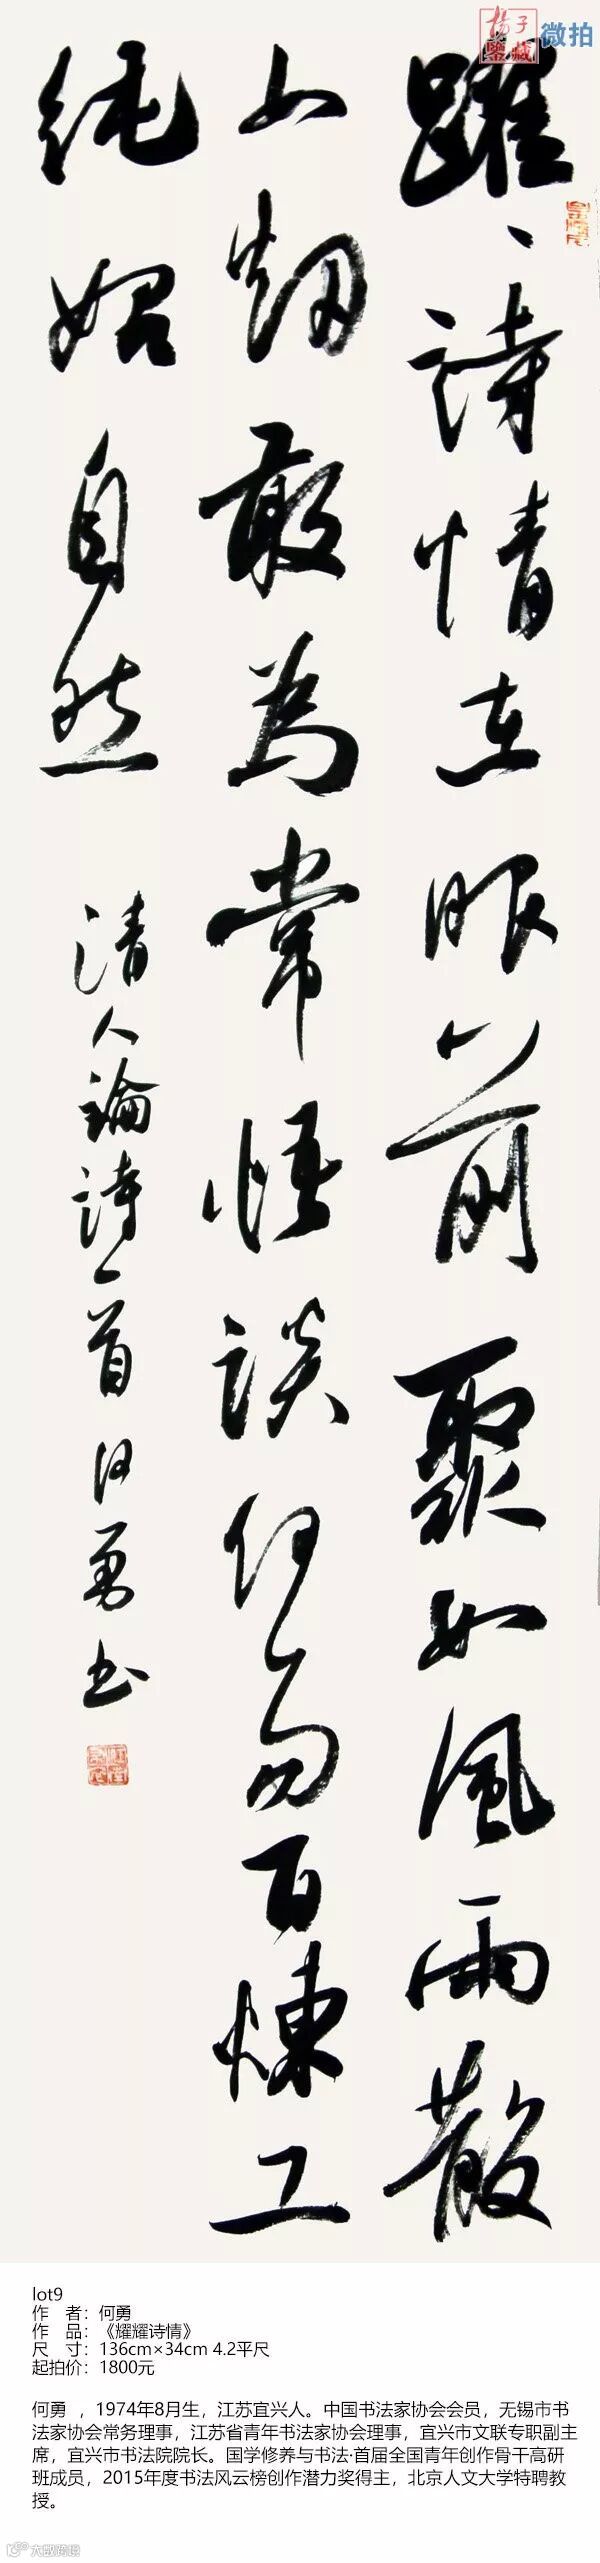 揚子
鑒藏
微拍
躍、詩情在眼前聚如風雨散
如烟敢為常悟談何易百煉工
純始自然
清人論詩一首何勇書
lot9
作 者：何勇
作 品：《耀耀诗情》
尺 寸：136cm×34cm 4.2平尺
起拍价：1800元
何勇 ，1974年8月生，江苏宜兴人。中国书法家协会会员，无锡市书
法家协会常务理事，江苏省青年书法家协会理事，宜兴市文联专职副主
席，宜兴市书法院院长。国学修养与书法·首届全国青年创作骨干高研
班成员，2015年度书法风云榜创作潜力奖得主，北京人文大学特聘教
授。
大数跨境